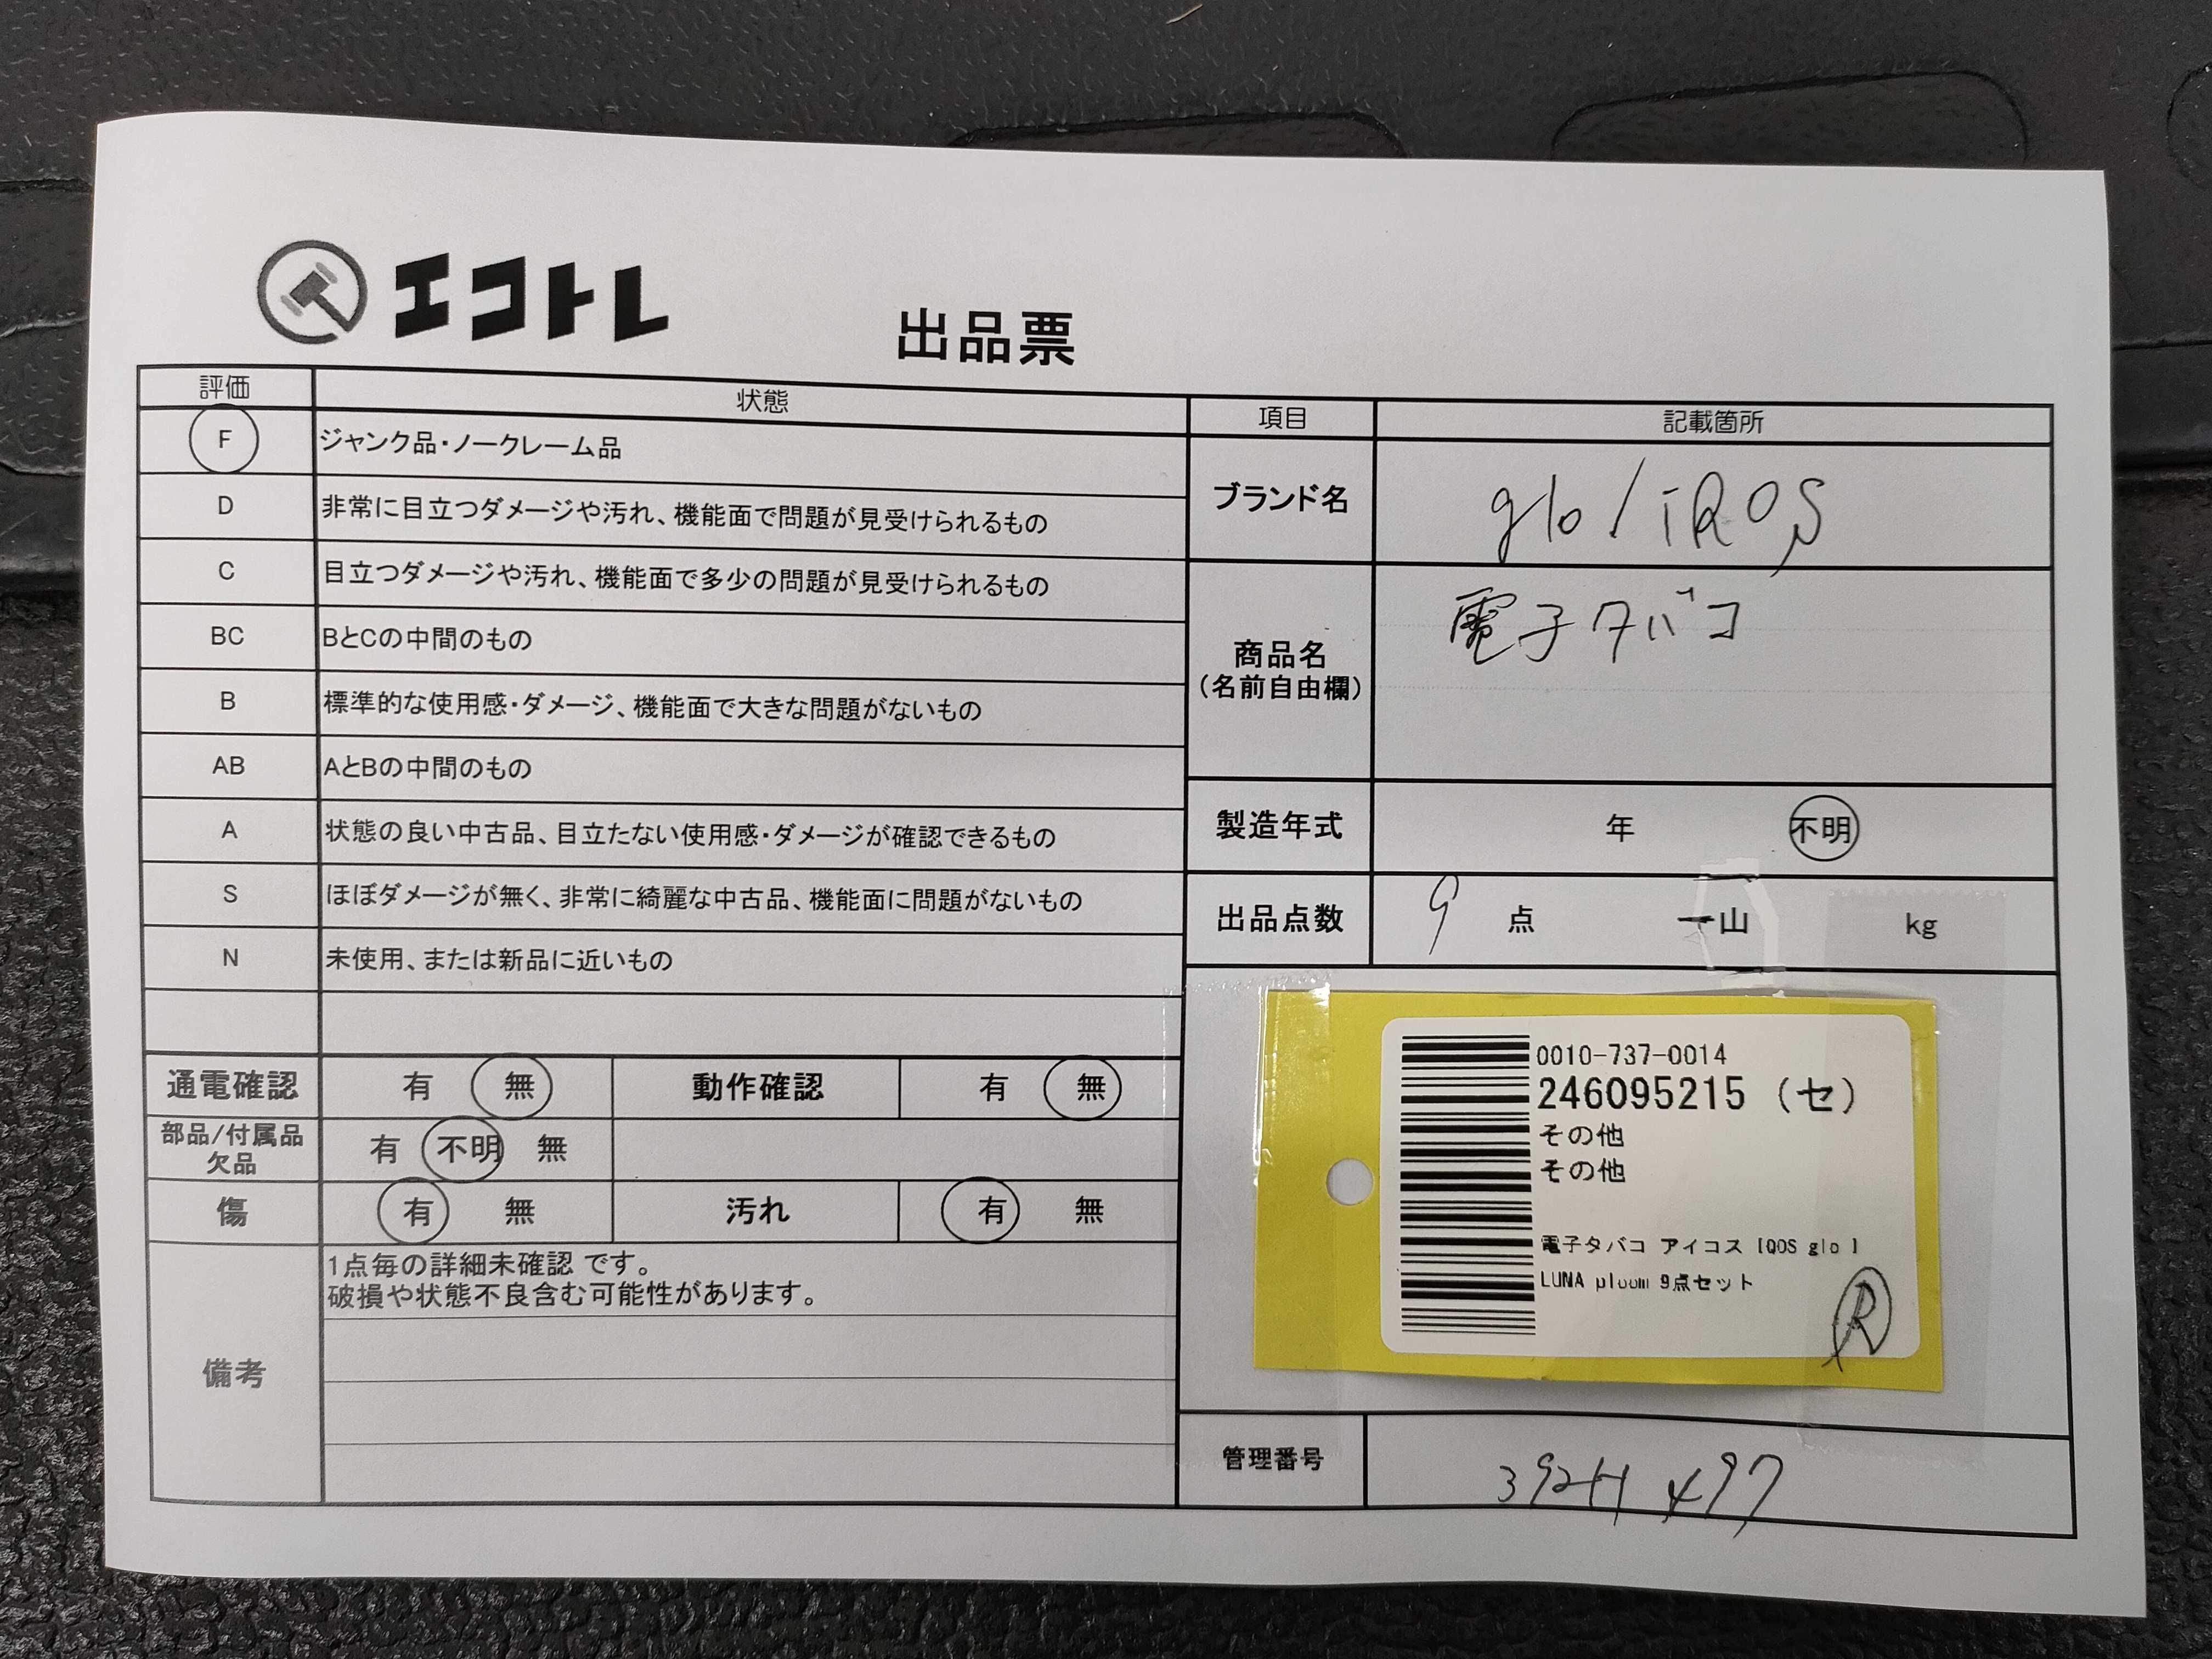 エコトレ
出品票
評価 状態
F ジャンク品・ノークレーム品
D 非常に目立つダメージや汚れ、機能面で問題が見受けられるもの
C 目立つダメージや汚れ、機能面で多少の問題が見受けられるもの
BC BとCの中間のもの
B 標準的な使用感・ダメージ、機能面で大きな問題がないもの
AB AとBの中間のもの
A 状態の良い中古品、目立たない使用感・ダメージが確認できるもの
S ほぼダメージが無く、非常に綺麗な中古品、機能面に問題がないもの
N 未使用、または新品に近いもの
通電確認 有 無 動作確認 有 無
部品/付属品
欠品 有 不明 無
傷 有 無 汚れ 有 無
備考
1点毎の詳細未確認 です。
破損や状態不良含む可能性があります。
項目 記載箇所
ブランド名 glo/iQOS
商品名
(名前自由欄)
電子タバコ
製造年式 年 不明
出品点数 9 点 一山 kg
0010-737-0014
246095215 (セ)
その他
その他
電子タバコ アイコス IQOS glo 1
LUNA ploom 9点セット
R
管理番号